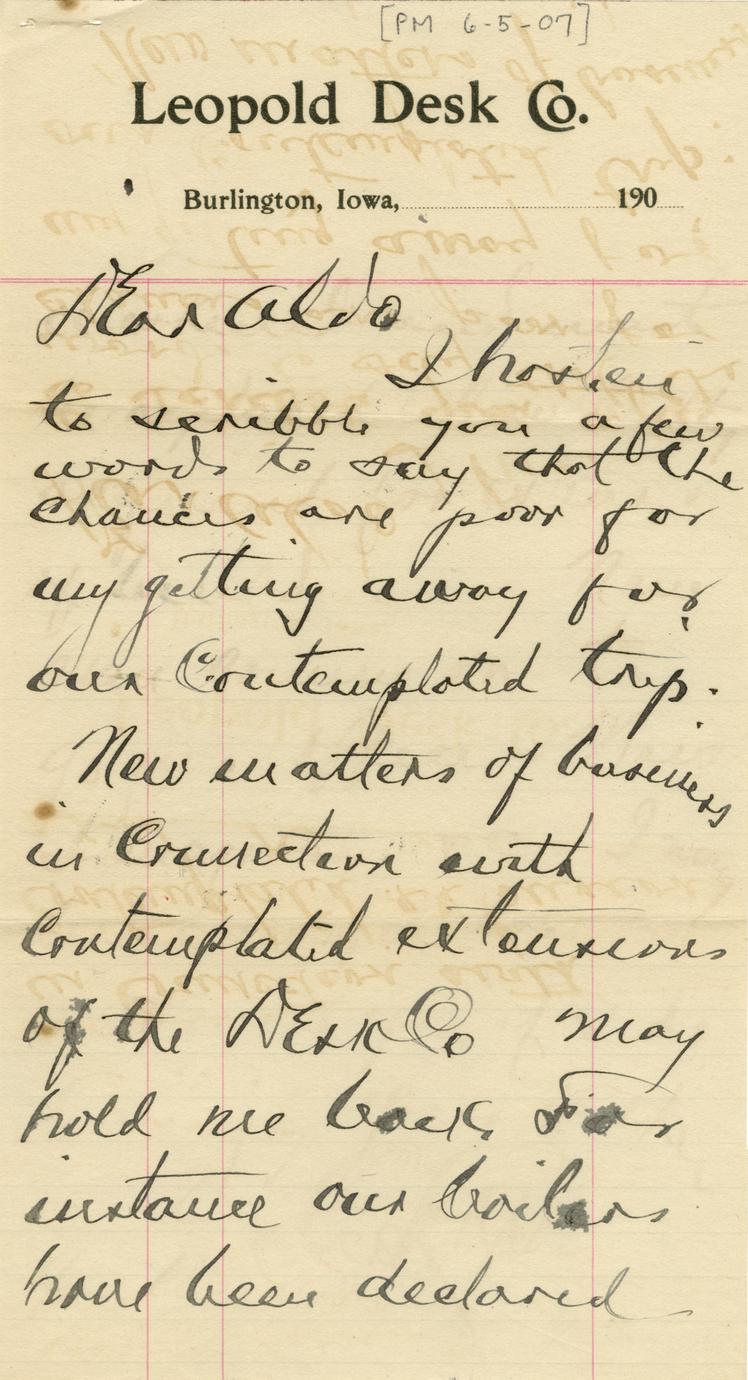 [PM 6-5-07]
Leopold Desk Co.
Burlington, Iowa, 190
Dear Aldo
I hasten
to scribble you a few
words to say that the
chances are poor for
my getting away for
our Contemplated trip.
New matters of business
in Connection with
Contemplated extensions
of the Desk Co may
hold me back. For
instance our boilers
have been declared